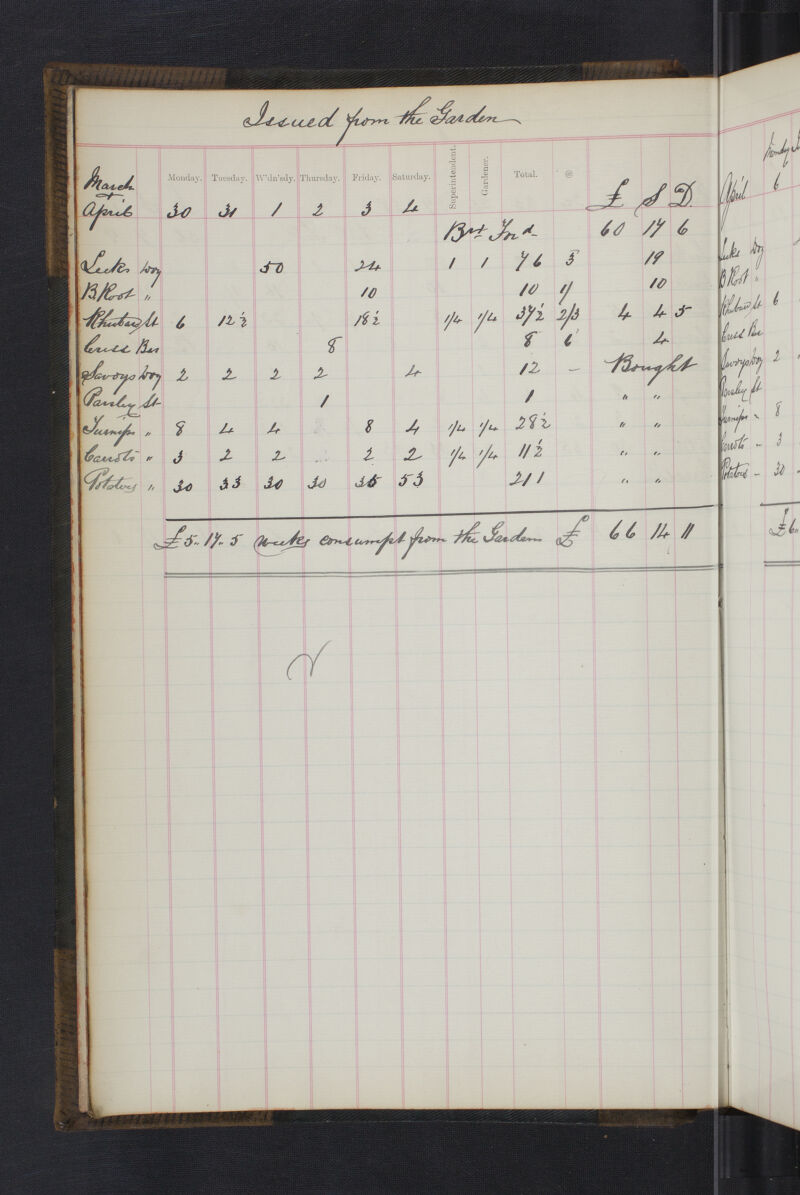 Issued from the Garden
March + Monday. Tuesday. W'dn'sdy. Thursday. Friday. Saturday. Superintendent. Gardener. Total. @
April 30 31 1 2 3 4 £ S D
Brt Frd 60 17 6
Leeks Doz 50 24 1 1 76 3 19
B. Root " 10 10 1/ 10
Rhubarb St 6 12½ 18½ 1/4 1/4 37½ 2/3 4 4 5
Cress Bas 8 8 6 4
Savoys Doz 2 2 2 2 4 12 — Bought
Parsley St 1 1 " "
Turnips " 8 4 4 8 4 1/4 1/4 28½ " "
Carrots " 3 2 2 2 2 1/4 1/4 11½ " "
Potatoes " 30 33 30 30 35 53 211 " "
£5.. 17.. 5 weeks consumpt from the Garden £ 66 14 11
April 6
Leeks Doz
B Root "
Rhubarb St 6
Cress Bas
Savoys Doz 2
Parsley St
Turnips " 8
Carrots " 3
Potatoes " 30
£6